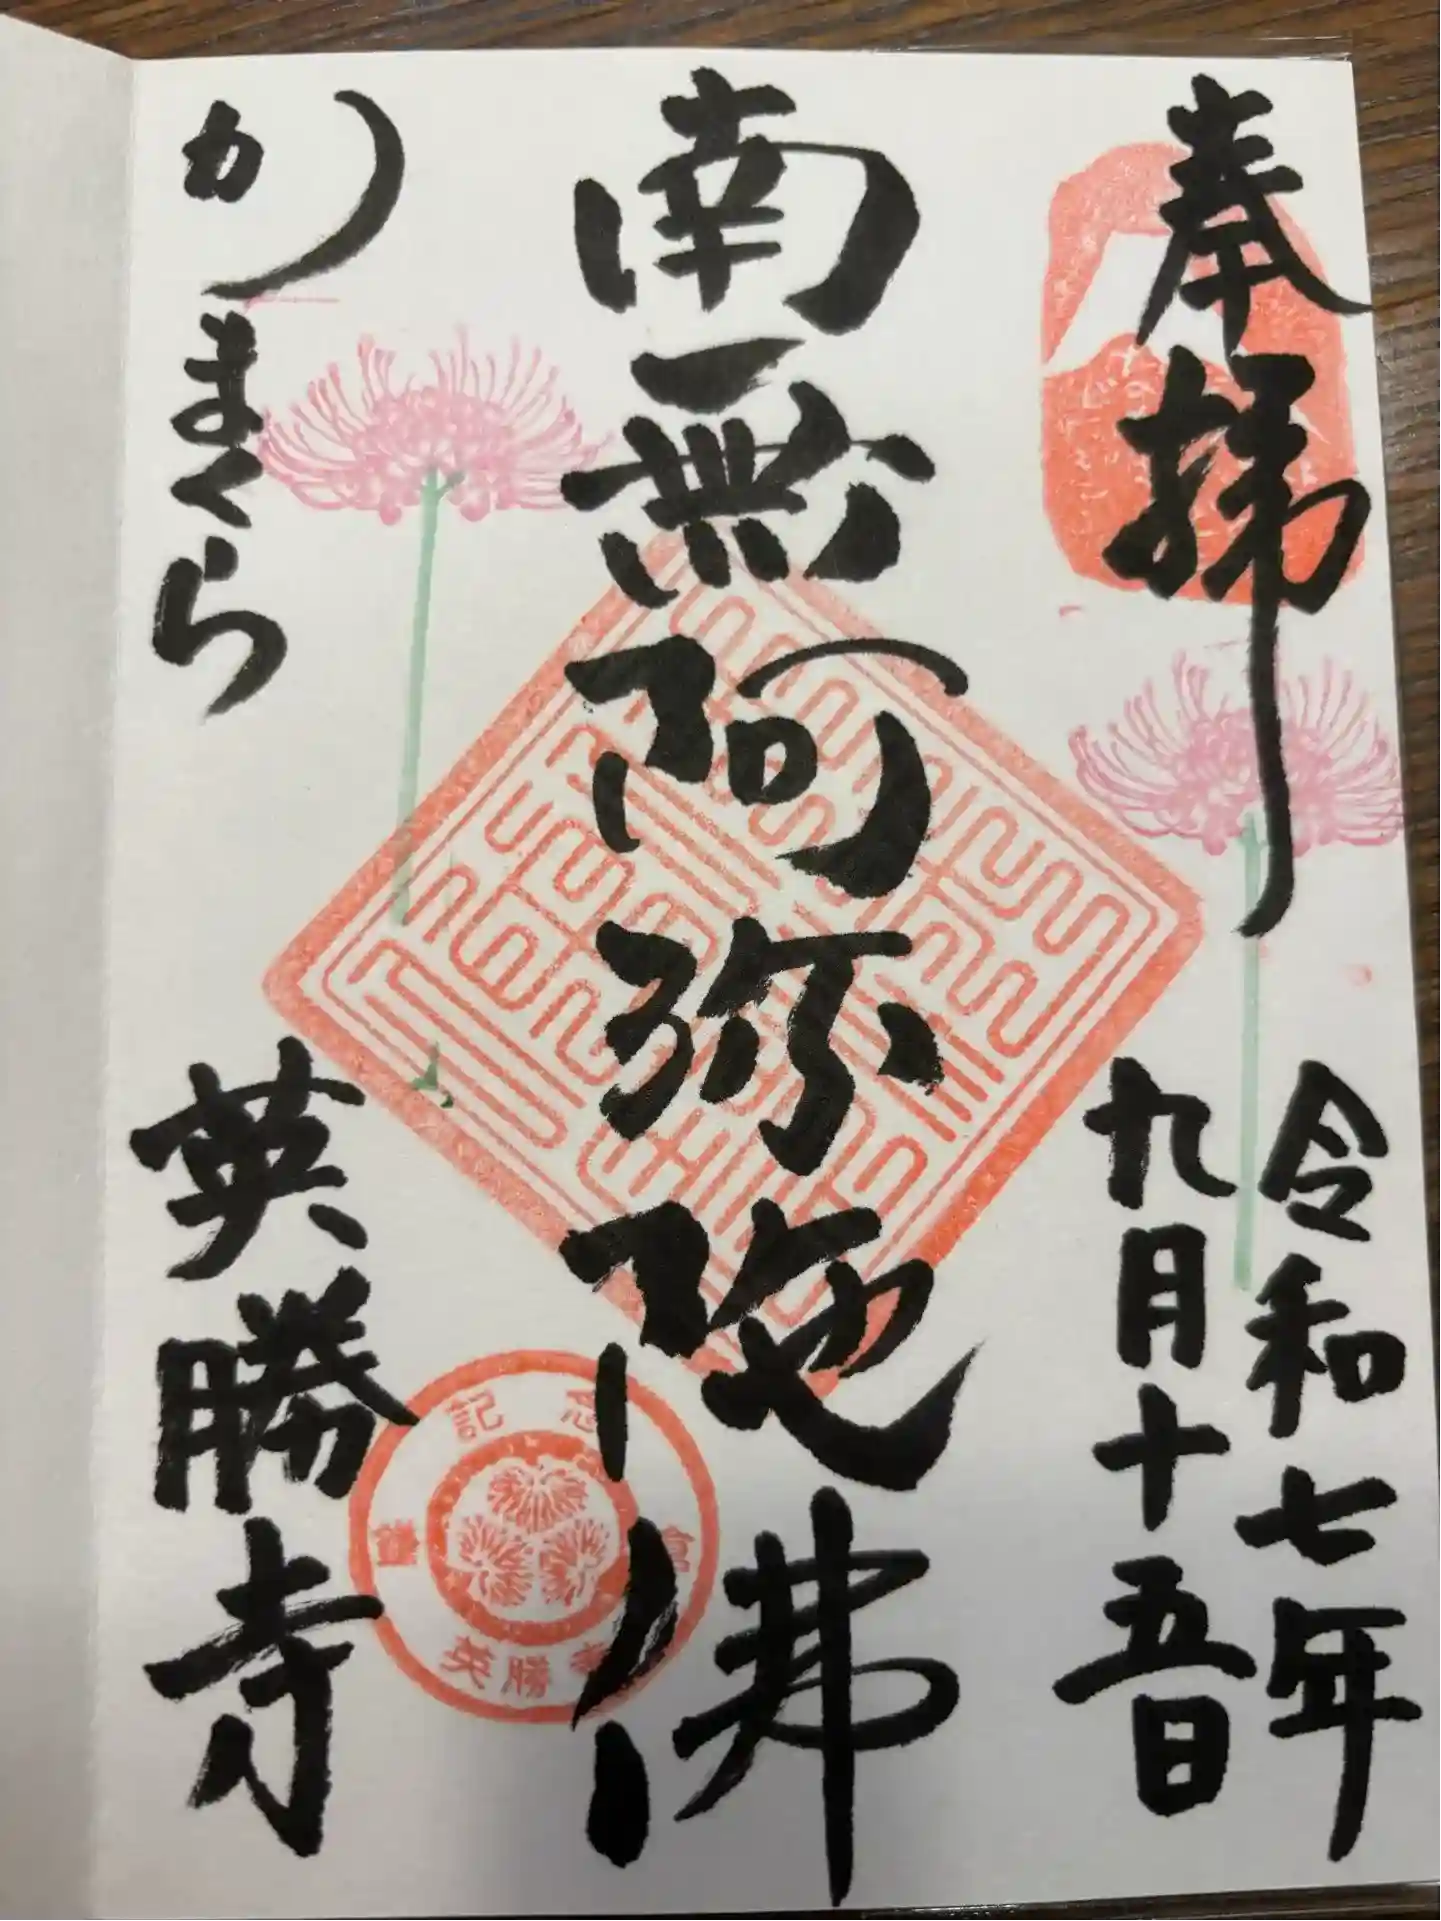 奉拝
令和七年
九月十五日
南無阿弥陀佛
かまくら
英勝寺
記念
英勝寺